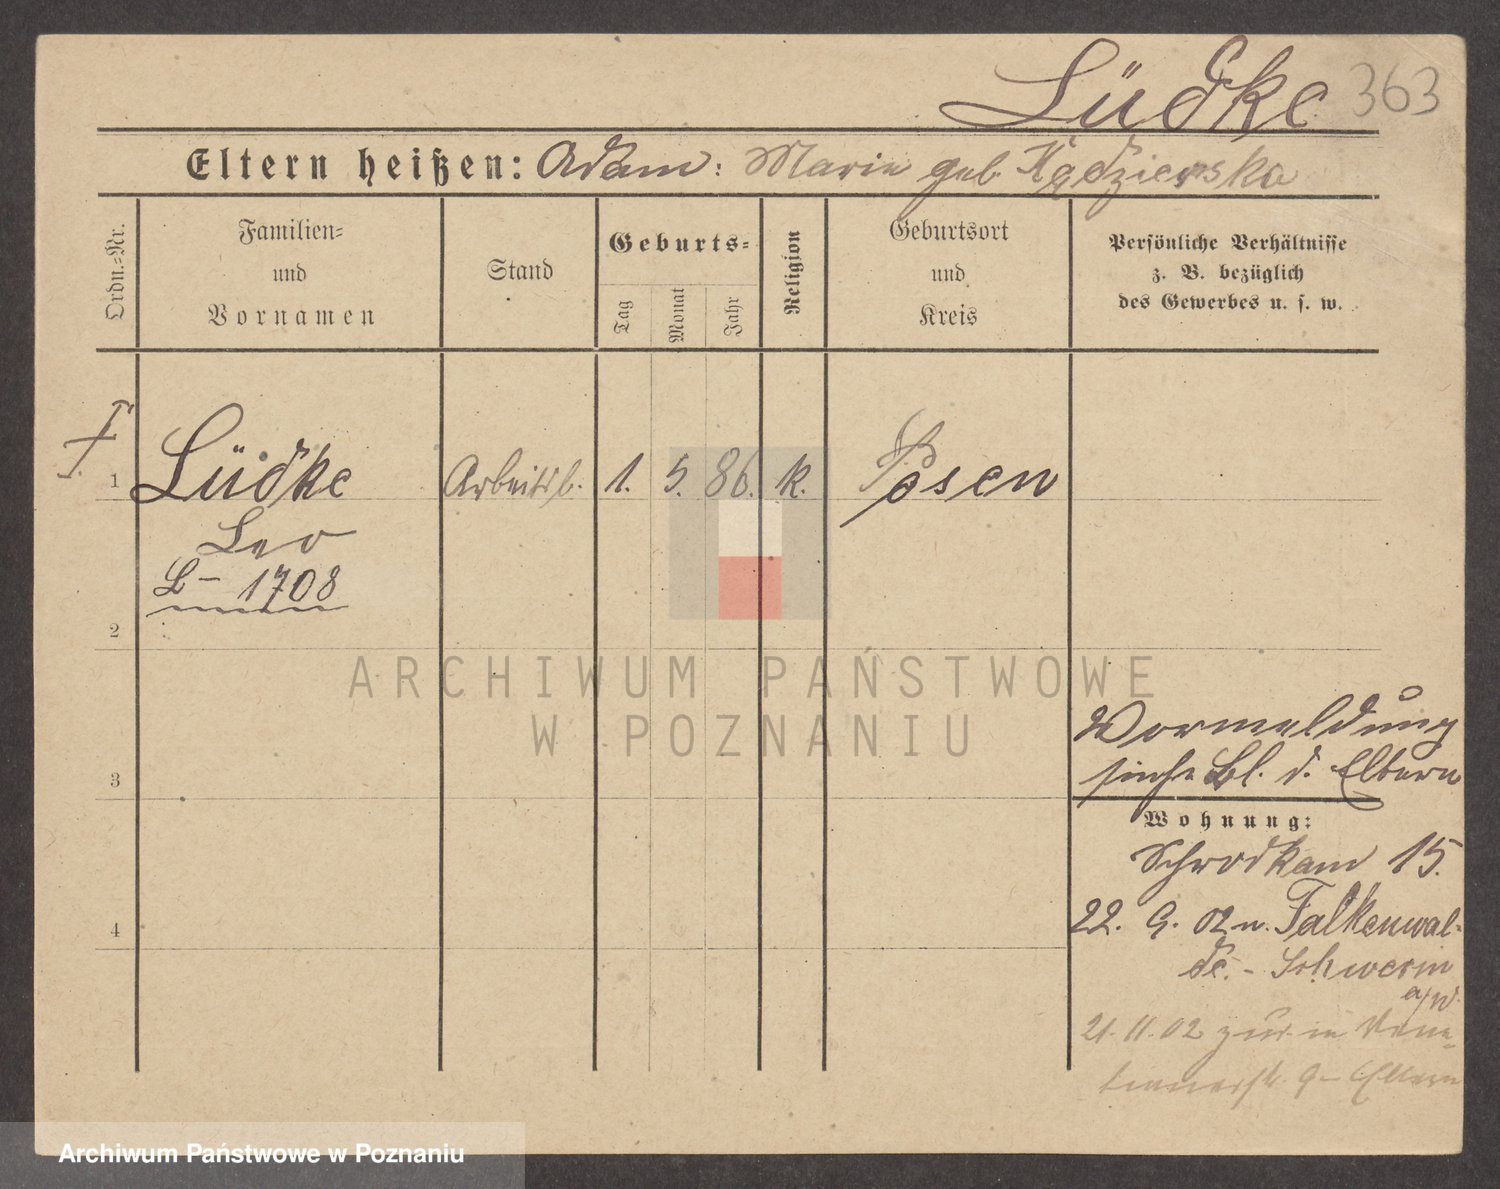 Lüdke 363
Eltern heißen: Adam: Marie geb. Kędzierska
Ordn.=Nr.
Familien=
und
Vornamen
Stand
Geburts=
Tag
Monat
Jahr
Religion
Geburtsort
und
Kreis
Persönliche Verhältnisse
z. B. bezüglich
des Gewerbes u. s. w.
1 Lüdke Arbeitsb. 1. 5. 86. k. Posen
Leo
L– 1708
2
ARCHIWUM PAŃSTWOWE
W POZNANIU
Vormeldung
siehe Bl. d. Eltern
3
Wohnung:
15.
4
22. 9. 02 n. Falkenwal-
de. - Schwerin
a/W.
21.11.02 zur. in
9 - Eltern
Archiwum Państwowe w Poznaniu